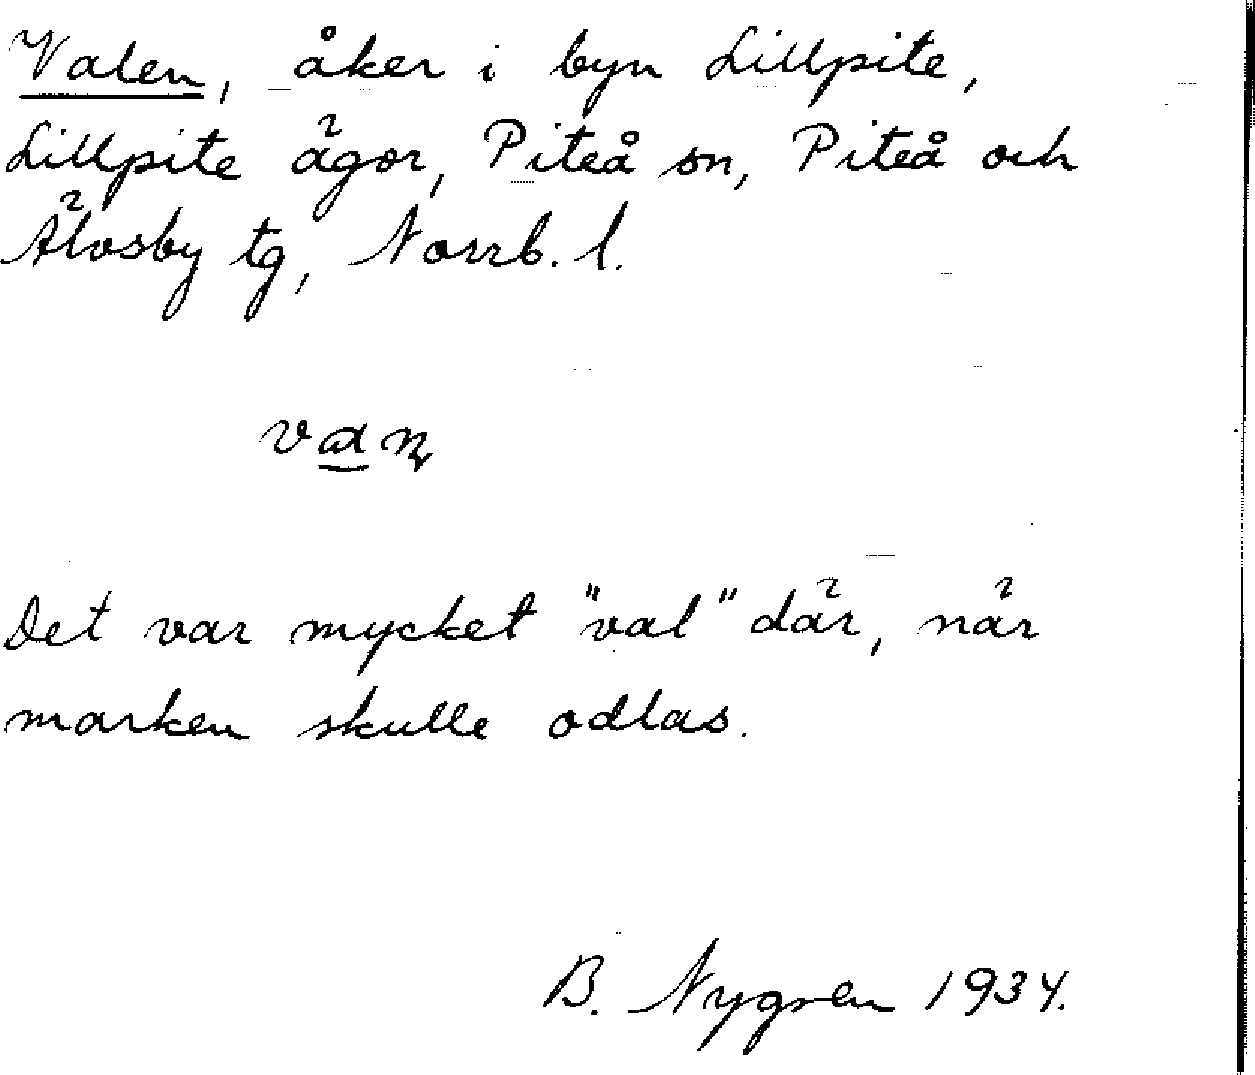 Valen, åker i byn Lillpite,
Lillpite ägor, Piteå sn, Piteå och
Älvsby tg, Norrb. l.
Det var mycket "val" där, när
marken skulle odlas.
B. Nygren 1934.